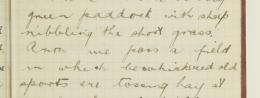 green paddock with sheep
nibbling the short grass.
Anon we pass a field
in which bewhiskered old
sports are tossing hay at